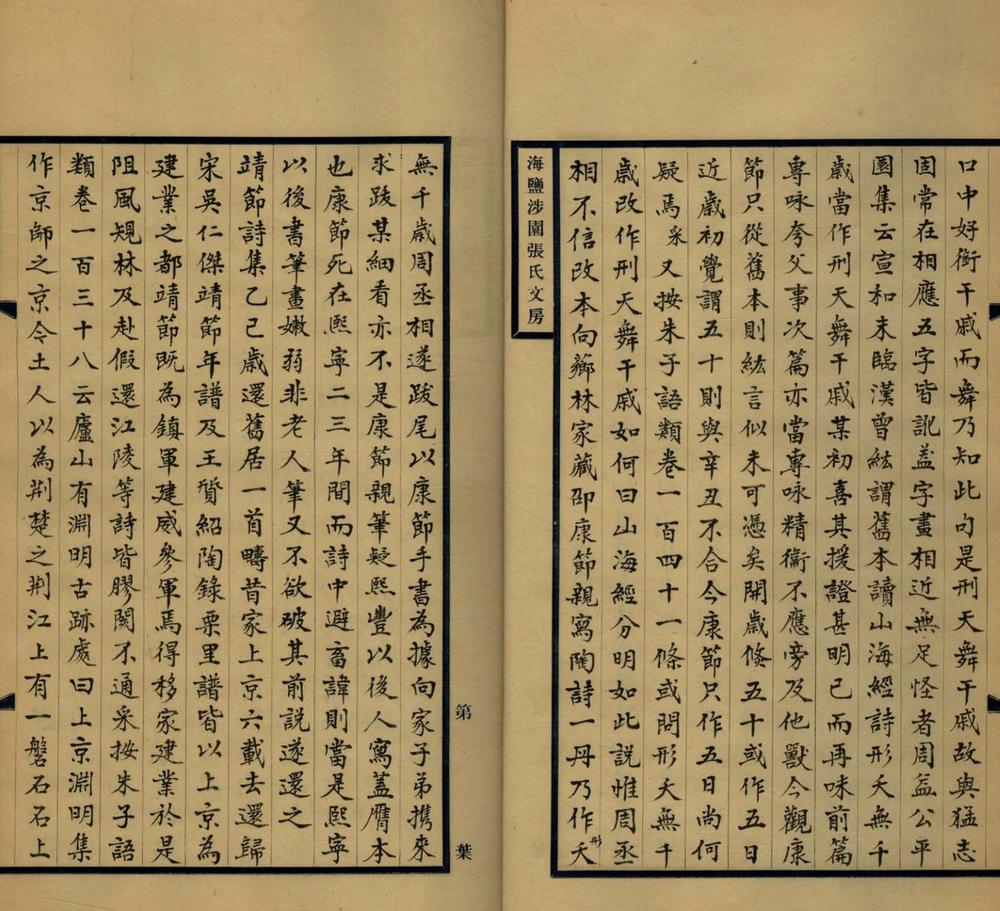 口中好銜干戚而舞乃知此句是刑天舞干戚故與猛志
固常在相應五字皆訛葢字畫相近無足怪者周益公平
園集云宣和末臨漢曾紘謂舊本讀山海經詩形夭無千
歲當作刑天舞干戚某初喜其援證甚明已而再味前篇
專咏夸父事次篇亦當專咏精衞不應旁及他獸今觀康
節只從舊本則紘言似未可憑矣開歲倏五十或作五日
近歲初覺謂五十則與辛丑不合今康節只作五日尚何
疑焉采又按朱子語類卷一百四十一條或問形夭無千
歲改作刑天舞干戚如何曰山海經分明如此說惟周丞
相不信改本向薌林家藏邵康節親寫陶詩一冊乃作形夭
海鹽涉園張氏文房
無千歲周丞相遂跋尾以康節手書為據向家子弟携來
求跋某細看亦不是康節親筆疑熙豐以後人寫蓋贗本
也康節死在熙寧二三年間而詩中避畜諱則當是熙寧
以後書筆畫嫩弱非老人筆又不欲破其前說遂還之
靖節詩集乙已歲還舊居一首疇昔家上京六載去還歸
宋吳仁傑靖節年譜及王質紹陶錄栗里譜皆以上京為
建業之都靖節既為鎮軍建威參軍焉得移家建業於是
阻風規林及赴假還江陵等詩皆膠閡不通采按朱子語
類卷一百三十八云廬山有淵明古跡處曰上京淵明集
作京師之京今土人以為荆楚之荆江上有一磐石石上
第
葉